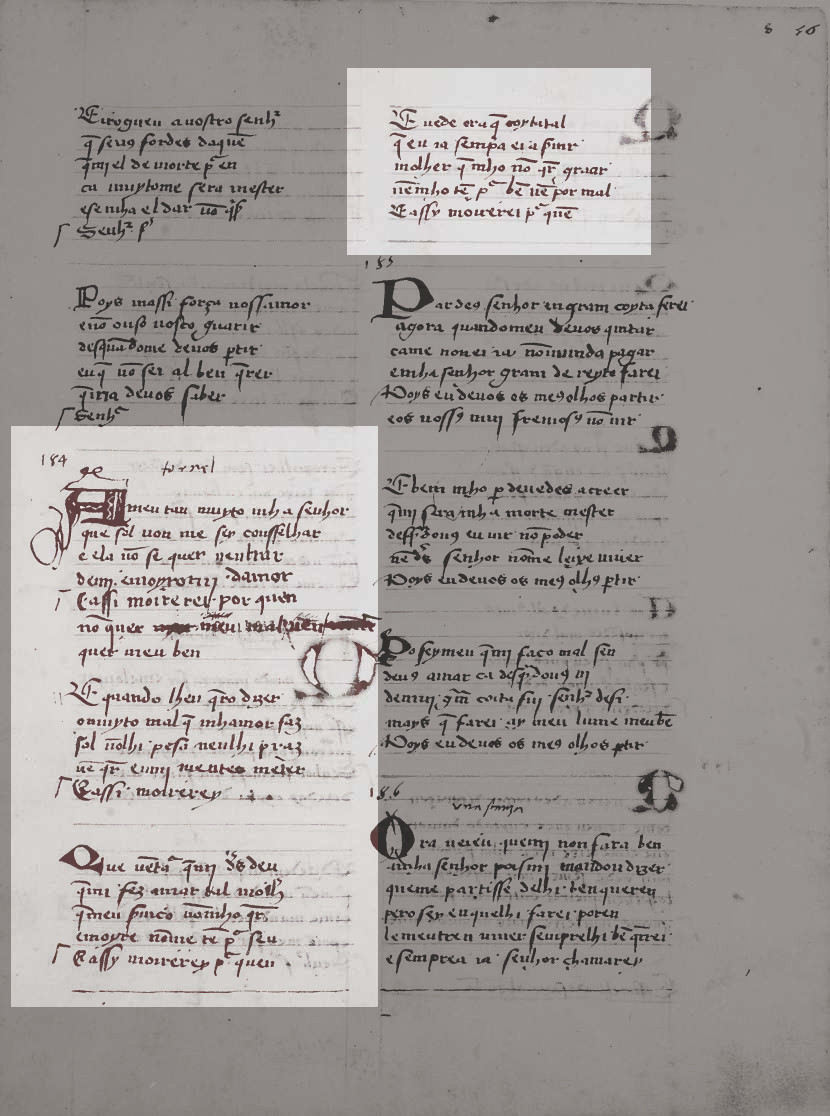 8 56
E rogueu a vostro senhr
q̄ seia fordes daque
q̄mj el de morte pᵉ en
ca muytome sera mester
esemha el dar nō q̄r
Senhr pᵉ
Poys massi força uossamor
enō ouso uosco guarir
desquādome deuos p̄tir
eu q̄ nō sei al ben q̄rer
q̄iria deuos saber
Senhr
184
tornel
Ameu tan muyto mha senhor
que sol non me sey conselhar
e ela nō se quer nenbrar
demi . emoyrommi . damor
E assi moirerei . por quen
nō quer meu mal nen
quer meu ben
E quando lheu q̄ro dizer
o muyto mal q̄ mhamor faz
sol nōlhi pesa neulhi praz
nē q̄r emj mentes meter
E assi . moirerey
Que uētᵃ q̄mj ds̄ deu
q̄mi fez amar tal molhr
q̄meu s̄uiço nō mho q̄r
emoyre nōme tē pᵉ seu
E assy moirerey pᵉ quen .
E uede ora q̄ coytital
q̄ eu ia semp̄a ei a s̄uir
molher q̄ mho nō q̄r graar
nē mho tē pᵉ bē nē por mal
E assy moirerei pᵉ quē
185
Par des senhor en gram coyta serei
agora quandomeu deuos quitar
ca me non ei ia nomundo pagar
emha senhor gram de reyto farei
Poys eu deuos os meꝯ olhos partir
eos uossꝯ mui fremosꝯ nō uir
E bem mho p deuedes a creer
q̄mj sera mha morte mester
desq̄ douꝯ eu uir nō poder
nē ds̄ senhor nōme leixe uiuer
Poys eu deuos os meꝯ olhꝯ p̄tir
Po seymeu q̄mj faço mal sen
deuꝯ amar ca desq̄ douꝯ ui
demuj grā coita fuj senhr des i
mays q̄ farei ay meu lume meu bē
Poys eu deuos os meꝯ olhos p̄tir
186
Ora ueieu quemj non fara ben
amha senhor pois mj mandou dizer
queme partisse delhi ben querer
pero sey eu quelhi farei poren
lementren uiuer semprelhi bē q̄rrei
e semprea ia senhor chamarey